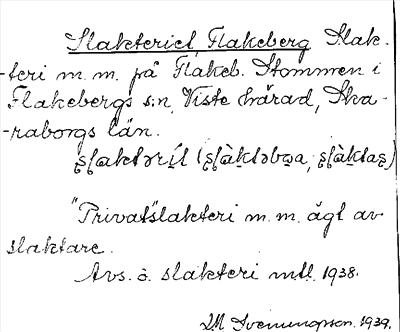 Slakteriet, Flakeberg Slak-
-teri m.m. på Flakeb. Stommen i
Flakebergs s:n, Viste härad, Ska-
-raborgs län.
"Privat"slakteri m.m. ägt av
slaktare.
Avs. ö. slakteri mtl. 1938.
Sveningson. 1939.